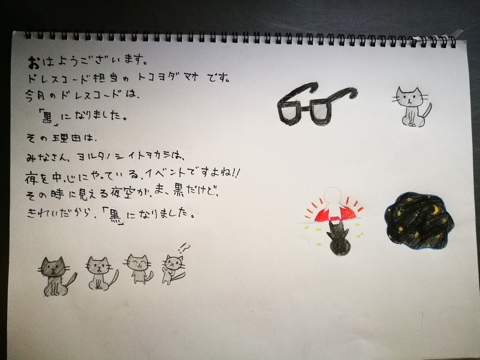 おはようございます。
ドレスコード担当の トコヨダマオ です。
今月のドレスコードは、
「黒」になりました。
その理由は、
みなさん、ヨルタノシイトヲカシは、
夜を中心にやっている、イベントですよね!!
その時に見える夜空が、ま、黒だけど、
きれいだから、「黒」になりました。
!?